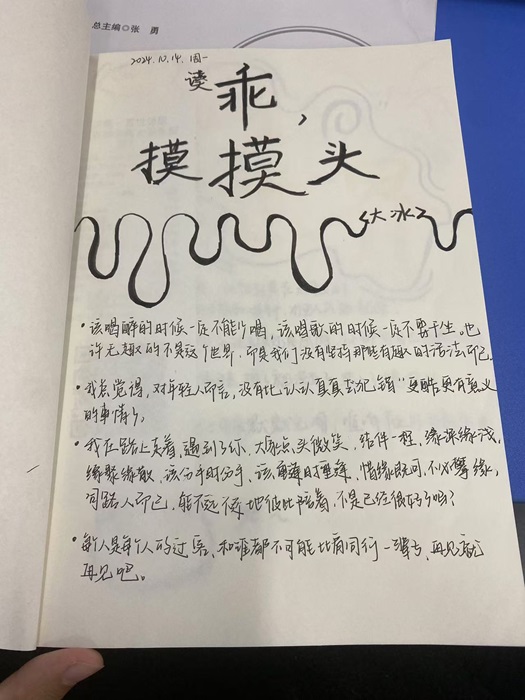 总主编◎张 勇
2024.10.14.周一
读
乖，
摸摸头
<大冰>
·该喝醉的时候一定不能少喝，该唱歌的时候一定不要干坐。也
许无趣的不是这个世界，而是我们没有坚持那些有趣的活法而已。
·我总觉得，对年轻人而言，没有比认认真真去犯错"更酷更有意义
的事情了。
·我在路上走着，遇到了你，大家点头微笑，结伴一程。缘深缘浅，
缘聚缘散，该分手时分手，该重逢时重逢，惜缘既可，不必攀缘，
同路人而已，能不远不近地彼此陪着，不是已经很好了吗？
·每人是每个人的过客，和谁都不可能比肩同行一辈子，再见就
再见吧。